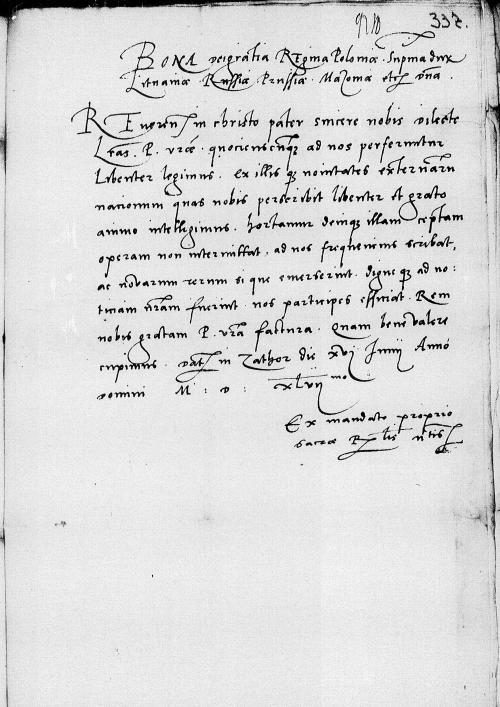 337.
BONA dei gratia Regina Poloniae. Supma dux
Lituaniae Russiae Prussiae. Mazoviae etc. dna.
REveren. in christo pater sincere nobis dilecte
Lras. P. vrae. quociescunque ad nos perferuntur
Libenter legimus. Ex illis q; novitates externarum
nacionum quas nobis perscribit libenter et grato
animo intelligimus. hortamur denique illam ceptam
operam non intermittat, ad nos frequencius scribat,
ac novarum rerum si que emerserint. digne q; ad no:
ticiam nram fuerint. nos participes efficiat. Rem
nobis gratam P. vra factura. Quam bene valere
cupimus. Dat. in Zathor die xvj Junij Anno
domini M : D : xlvij mo.
Ex mandato proprio
sacrae Rlis Mtis